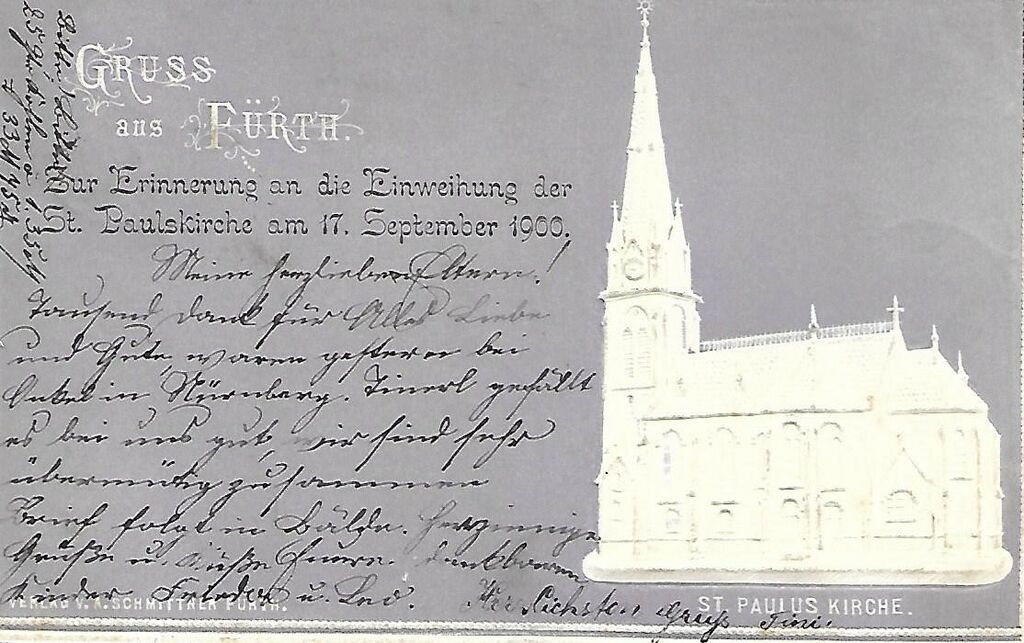 GRUSS
aus FÜRTH.
Zur Erinnerung an die Einweihung der
St. Paulskirche am 17. September 1900.
Meine herzlieben Eltern!
Tausend Dank für Alles Liebe
und Gute, waren gestern bei
Onkel in Nürnberg. Tinerl gefällt
es bei uns gut, wir sind sehr
übermütig zusammen
Brief folgt in Bälde. Herzinnige
Grüße u. Küße Euere dankbaren
Kinder Frieda u. Leo.
Herzlichsten Gruß Tini.
VERLAG V. A. SCHMITTNER FÜRTH.
ST. PAULUS KIRCHE.